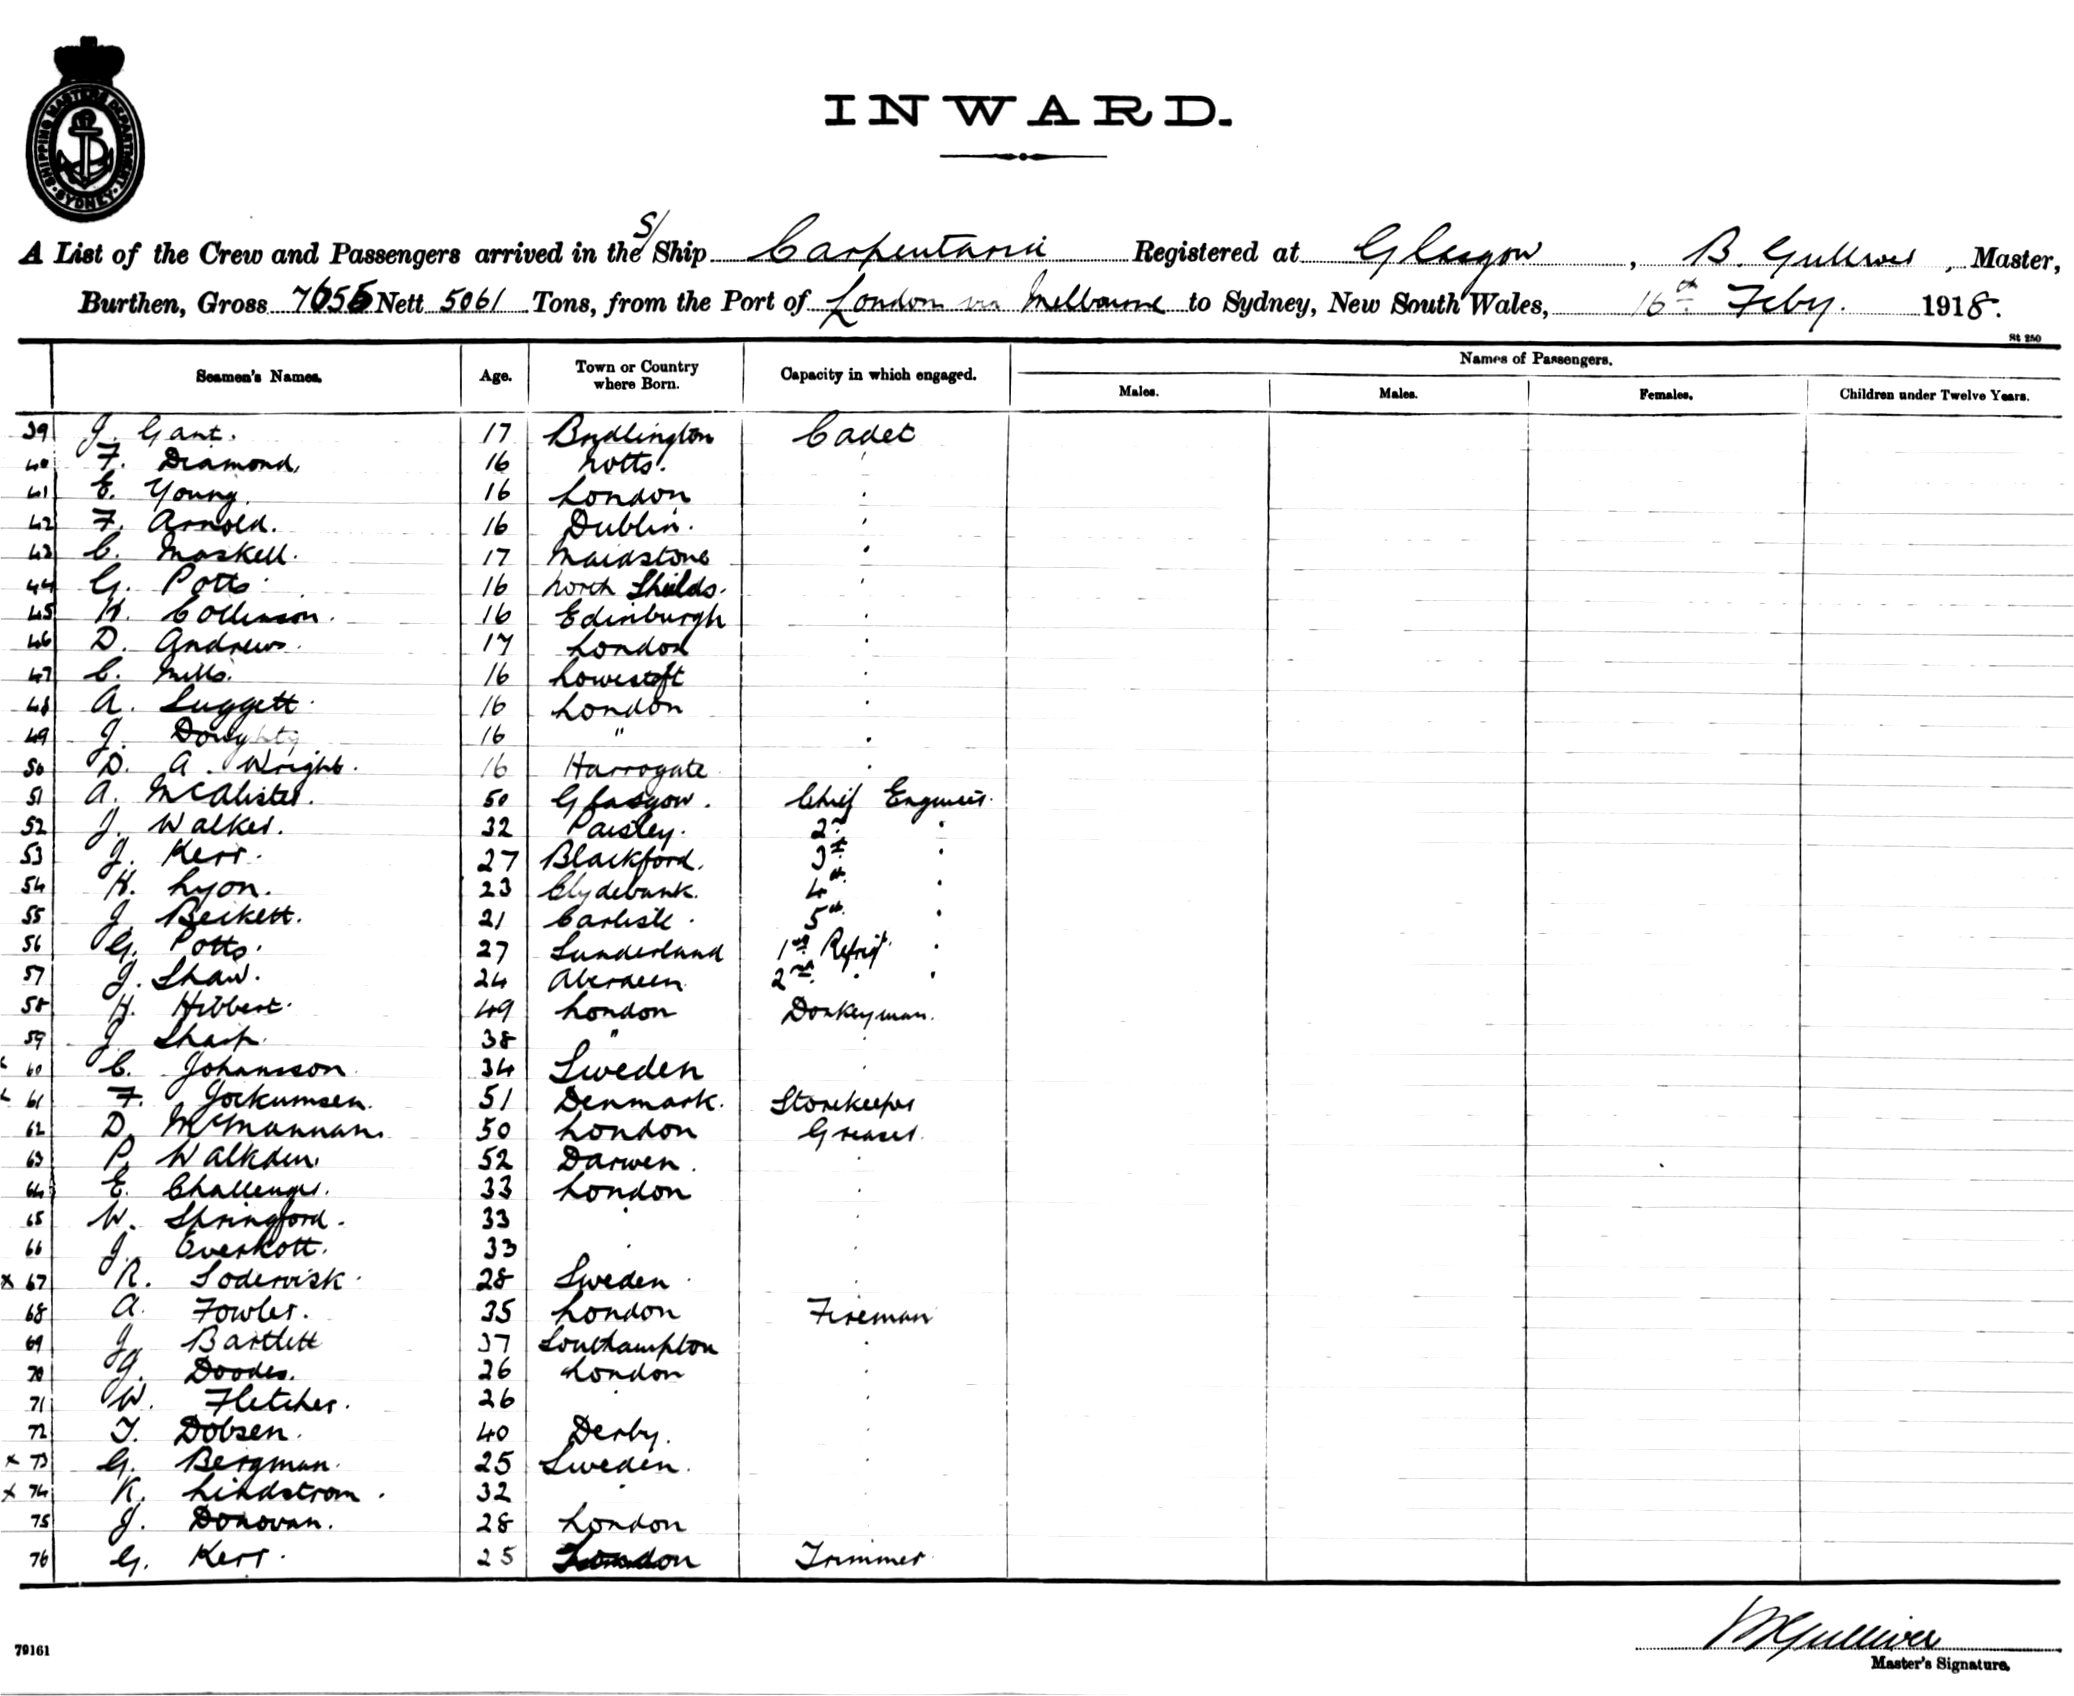 SHIPPING MASTER'S DEPARTMENT SYDNEY
INWARD.
A List of the Crew and Passengers arrived in the S/ Ship Carpentaria Registered at Glasgow, B. Gulliver, Master,
Burthen, Gross Nett 5061 Tons, from the Port of London via Melbourne to Sydney, New South Wales, 16th Feby. 1918.
St 250
Seamen's Names. Age. Town or Country where Born. Capacity in which engaged. Names of Passengers.
Males. Males. Females. Children under Twelve Years.
39 J. Gant. 17 Bridlington Cadet
40 F. Diamond, 16 Notts. "
41 E. Young. 16 London "
42 F. Arnold. 16 Dublin. "
43 C. Maskell. 17 Maidstone "
44 G. Potts. 16 North Shields. "
45 H. Collinson. 16 Edinburgh "
46 D. Andrews. 17 London "
47 C. Mills. 16 Lowestoft "
48 A. Luggett. 16 London "
49 J. Doughty 16 " "
50 D. A. Wright. 16 Harrogate "
51 A. McAlister. 50 Glasgow. Chief Engineer.
52 J. Walker. 32 Paisley. 2nd "
53 J. Kerr. 27 Blackford. 3rd "
54 H. Lyon. 23 Clydebank. 4th "
55 J. Beckett. 21 Carlisle. 5th "
56 G. Potts. 27 Sunderland 1st Refrig. "
57 J. Shaw. 24 Aberdeen 2nd " "
58 H. Hibbert. 49 London Donkeyman.
59 J. Sharp. 38 " "
60 C. Johansson. 34 Sweden "
61 F. Jockumsen. 51 Denmark. Storekeeper
62 D. McMannan. 50 London Greaser.
63 P. Walkden. 52 Darwen. "
64 E. Challenger. 33 London "
65 W. Springford. 33 " "
66 J. Everkott. 33 " "
x 67 R. Sodervisk. 28 Sweden "
68 A. Fowler. 35 London Fireman
69 J. Bartlett 37 Southampton "
70 J. Doodes. 26 London "
71 W. Fletcher. 26 " "
72 T. Dobsen. 40 Derby. "
x 73 G. Bergman. 25 Sweden. "
x 74 K. Lindstrom. 32 " "
75 J. Donovan. 28 London "
76 G. Kerr. 25 London Trimmer
B Gulliver
79161
Master's Signature.